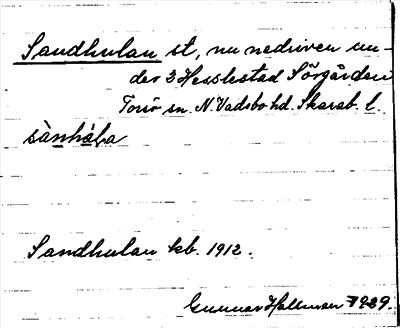 Sandhulan st, nu nedriven un-
der 3 Hesslestad Sörgården
sn. N. Vadsbo hd. Skarab. l.
sànhúla
Sandhulan kb. 1912.
Gunnar Hallman 1929.